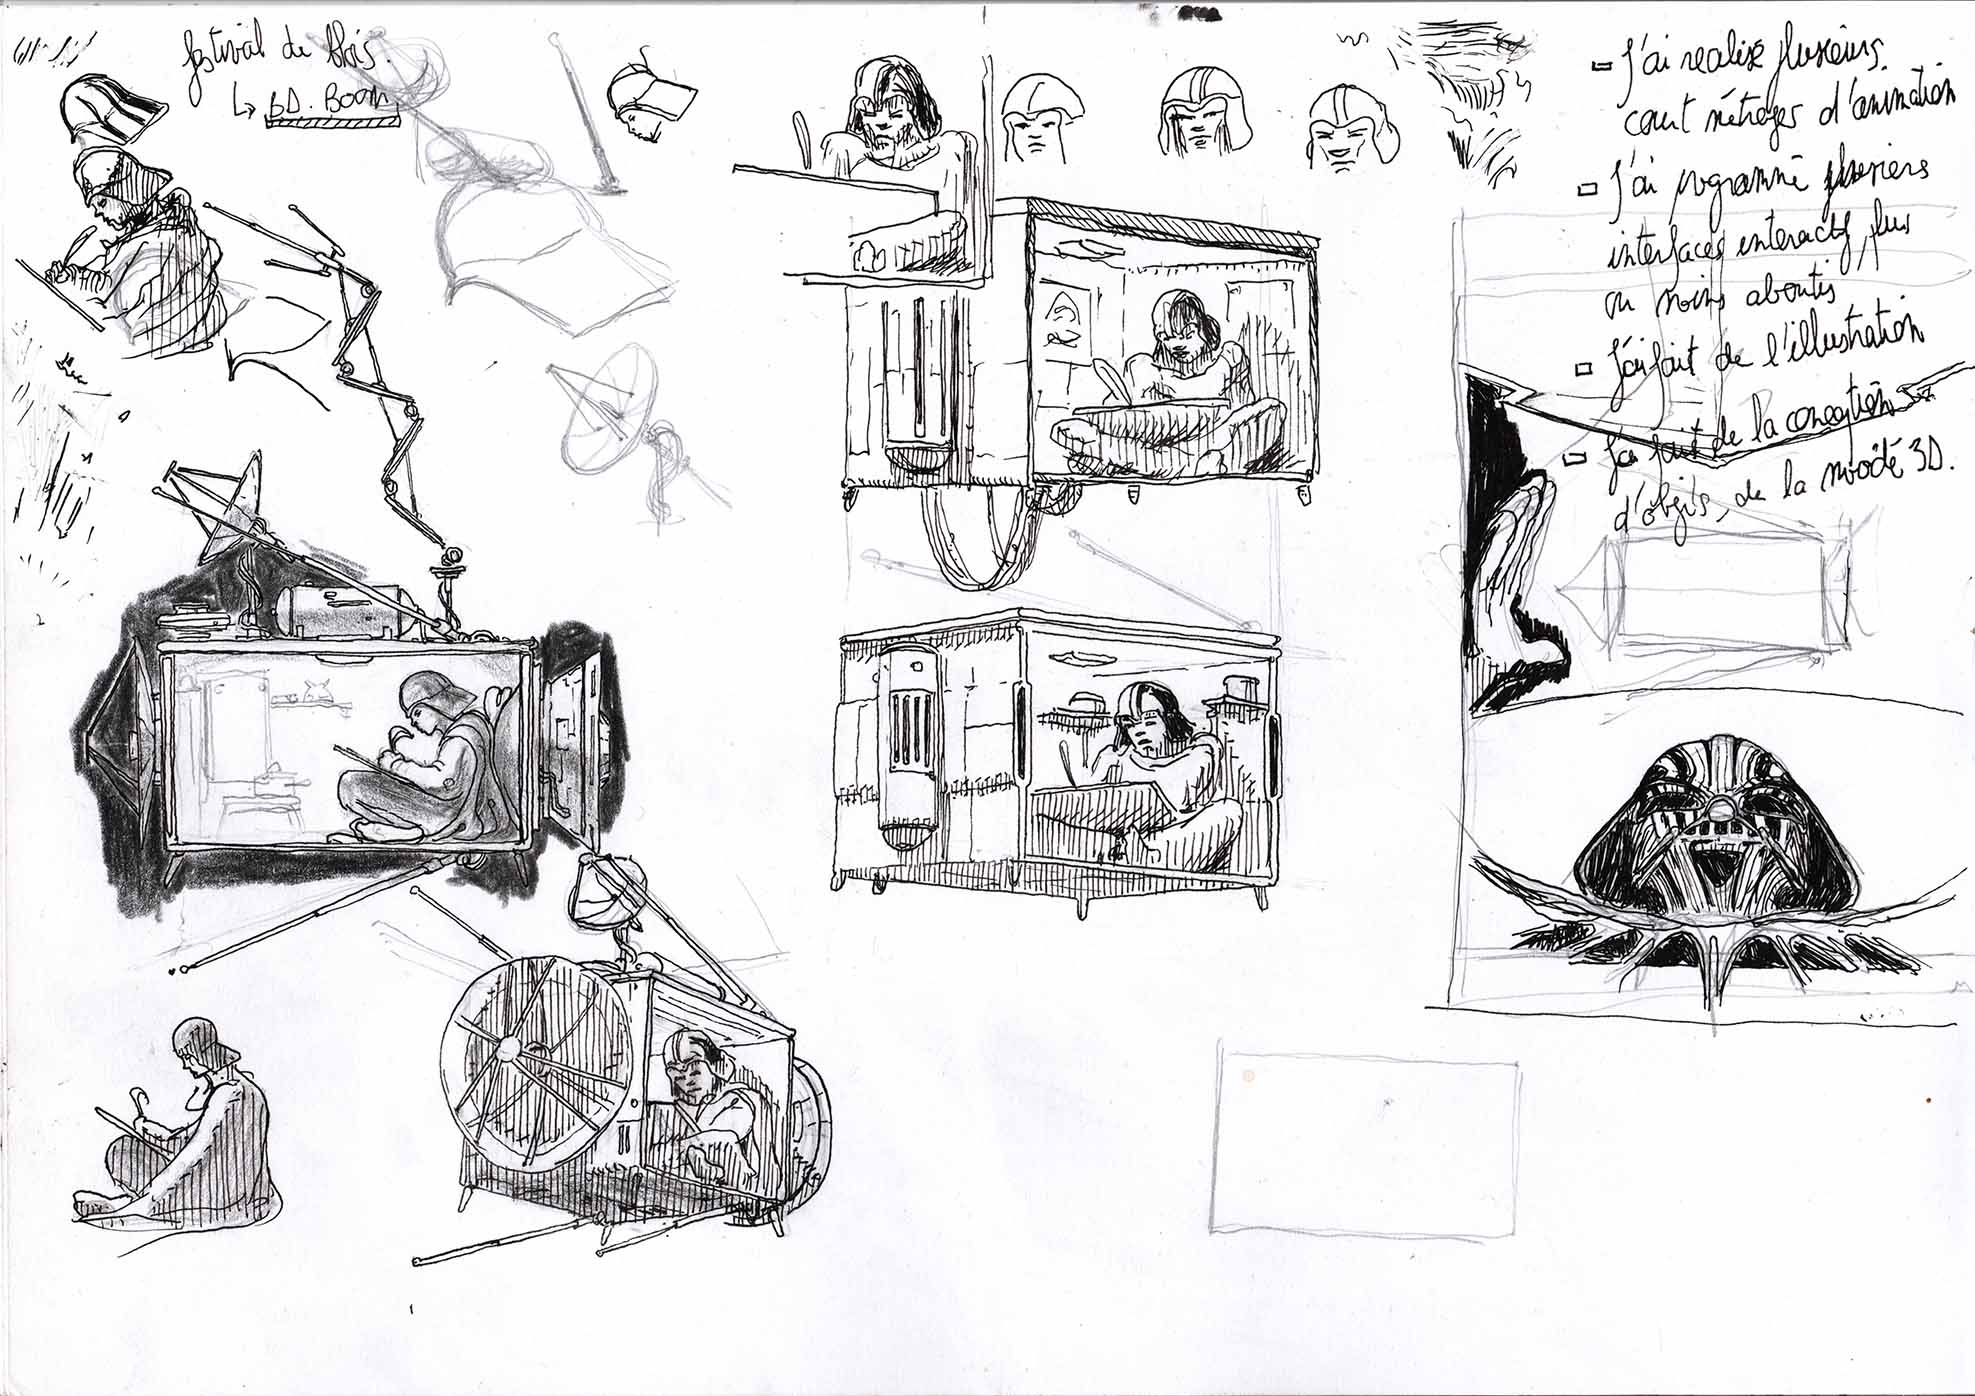 festival de blois.
↳ BD. BOOM
▭ J'ai realisé plusieurs
court métrages d'animation
▭ J'ai programmé plusieurs
interfaces interactifs, plus
ou moins aboutis
▭ J'ai fait de l'illustration
▭ J'ai fait de la conception
d'objets, de la modé 3D.